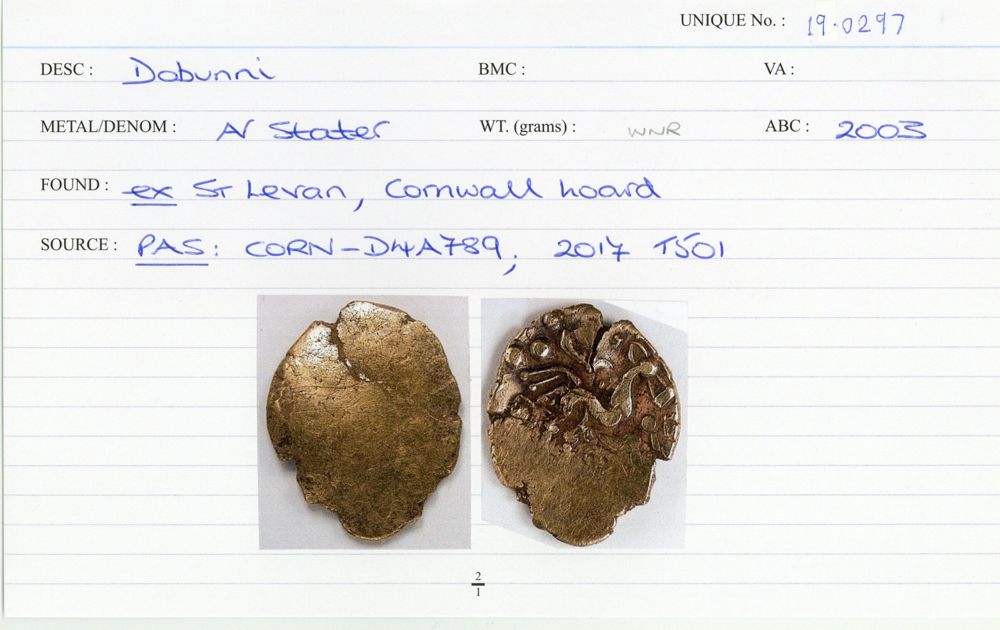 UNIQUE No. : 19.0297
DESC : Dobunni BMC : VA :
METAL/DENOM : AV Stater WT. (grams) : WNR ABC : 2003
FOUND : ex St Levan, Cornwall hoard
SOURCE : PAS: CORN-D4A789; 2017 T501
2
1